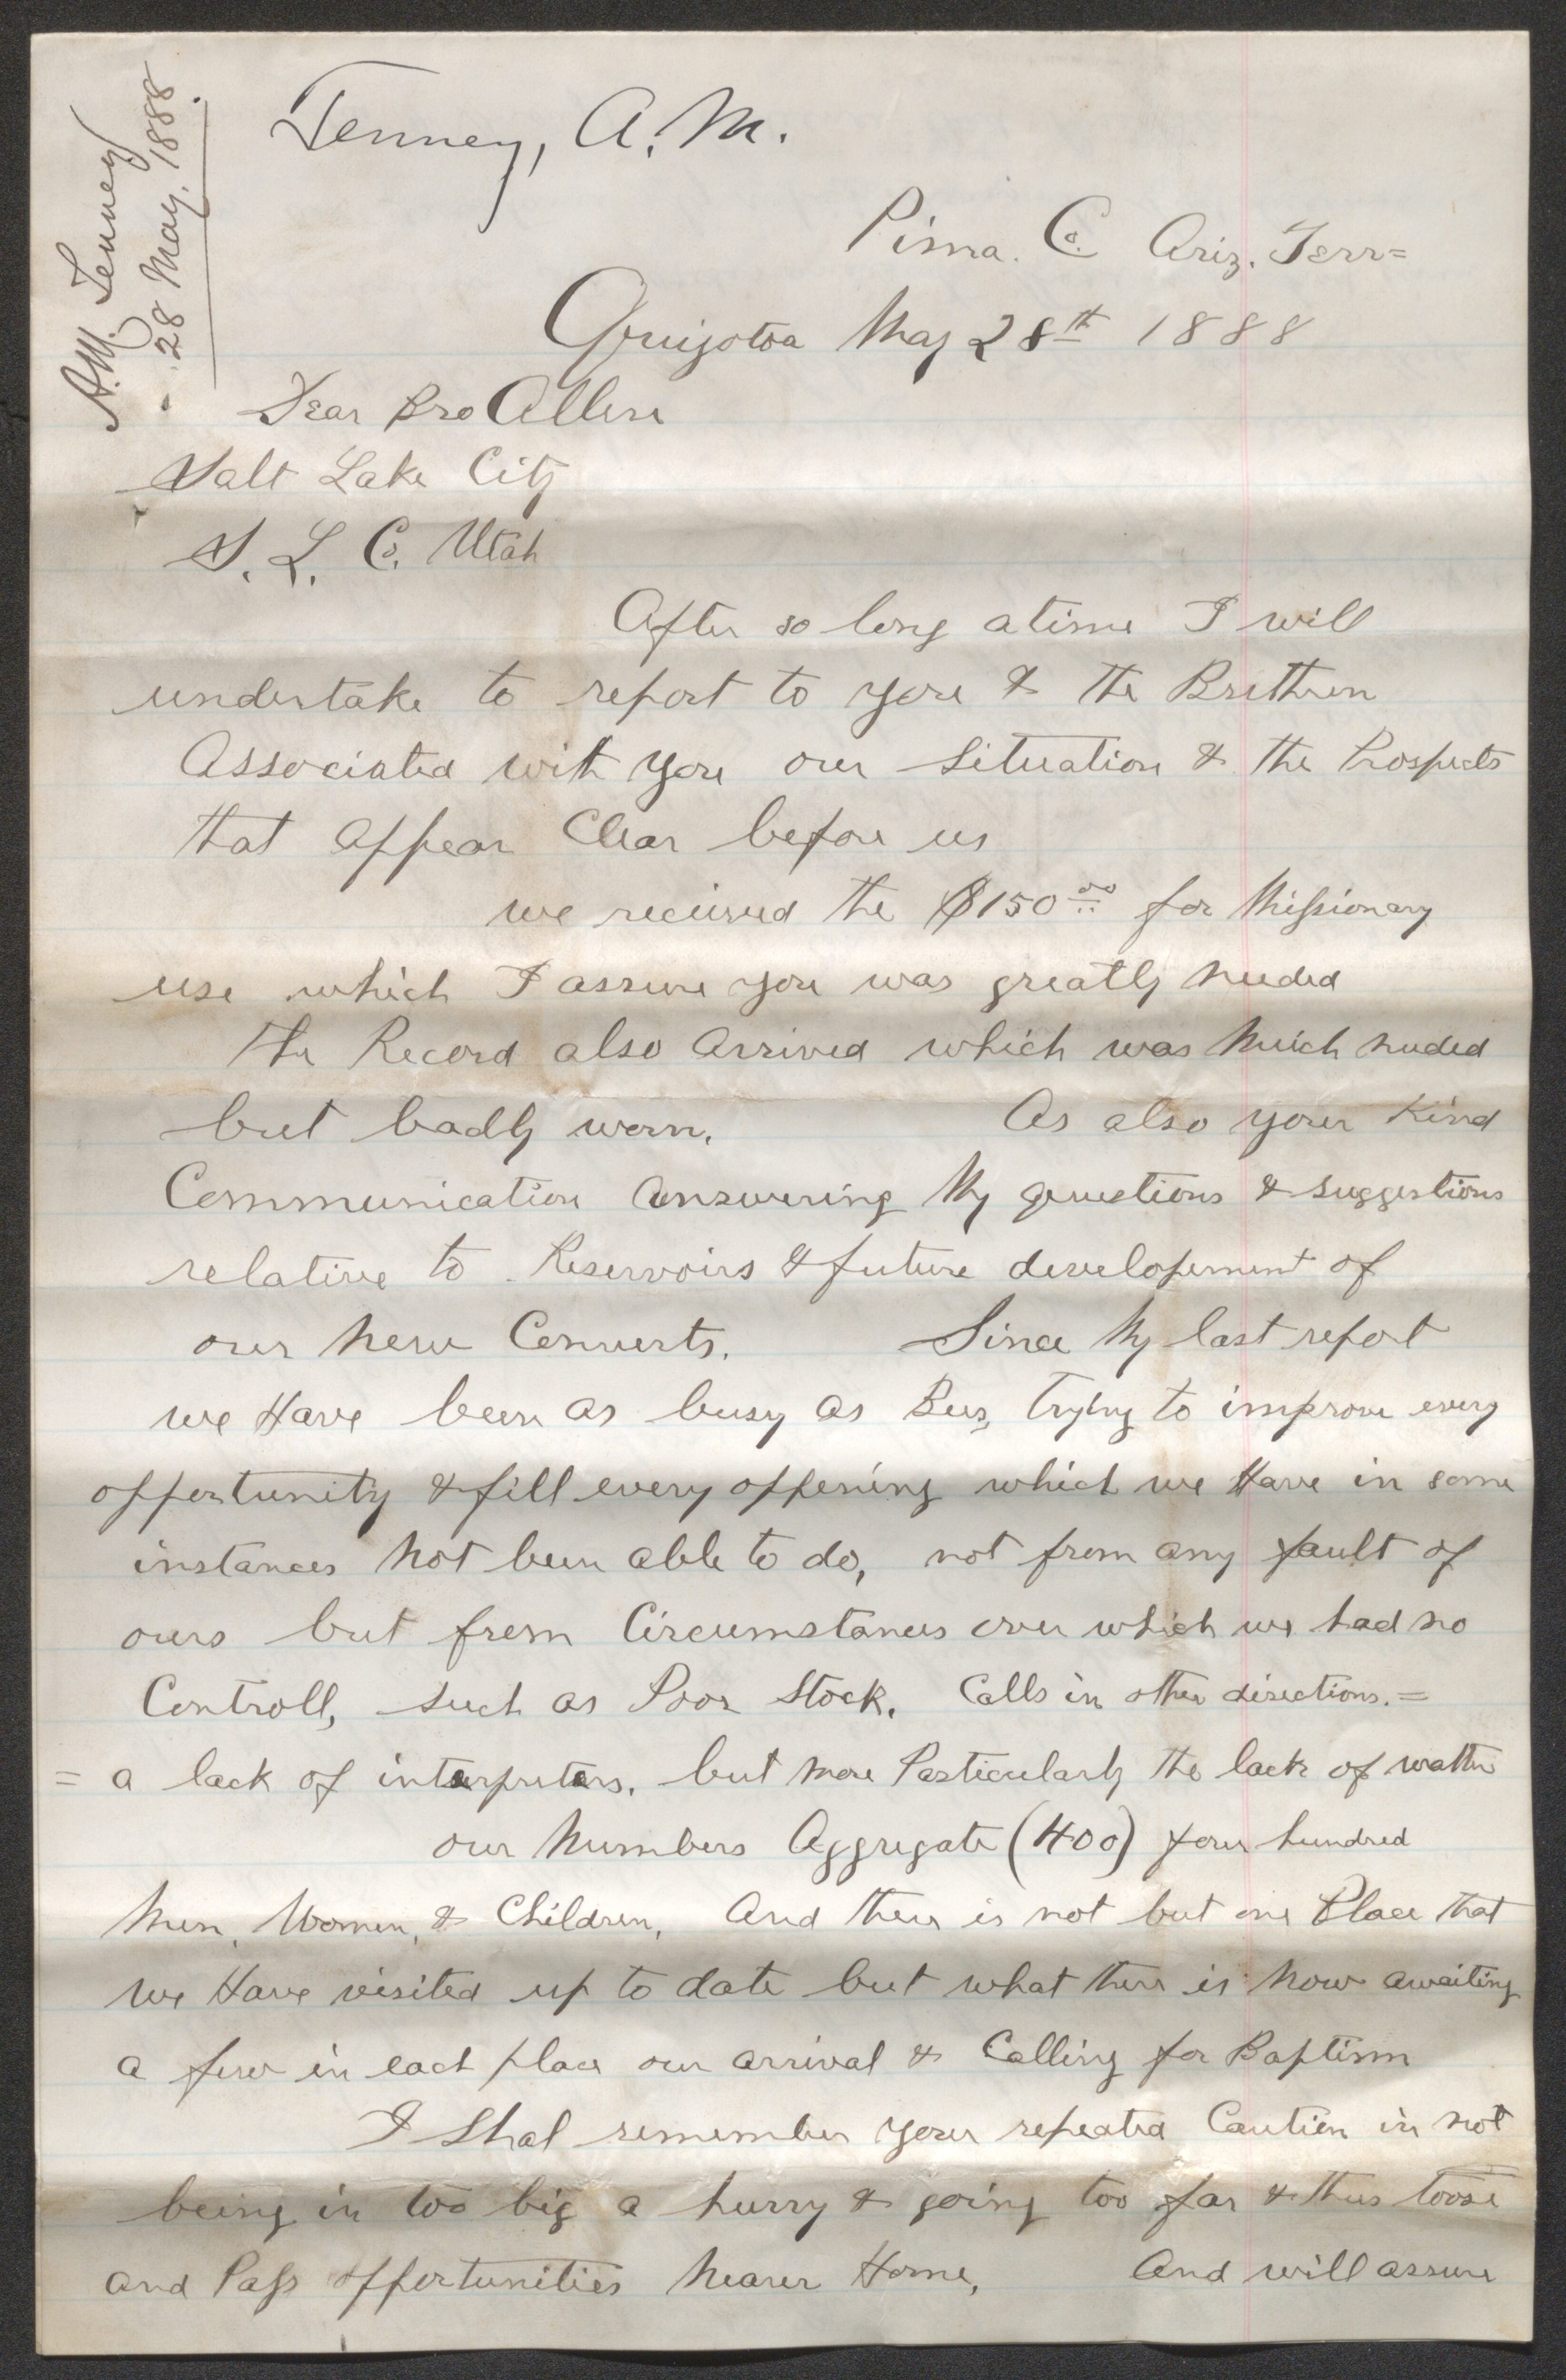 A.M. Tenney
28 May, 1888.
Tenney, A. M.
Pima. Co. Ariz. Terr=
Quijotoa May 28th 1888
Dear Bro Allen
Salt Lake City
S. L. Co. Utah
After so long atime I will
undertake to report to you & the Brethren
Associated with you our Situation & the Prospects
that appear Clear before us
we recieved the $150.00 for Missionary
use which I assure you was greatly needed
The Record also arrived which was Much needed
but badly worn. As also your Kind
Communication answering My questions & suggestions
relative to Reservoirs & future developement of
our New Converts. Since My last report
we Have been as busy as Bees, trying to improve every
oppertunity & fill every oppening which we Have in some
instances Not been able to do, not from any fault of
ours but from Circumstances over which we had no
Controll, such as Poor Stock. Calls in other directions.=
= a lack of interpreters. but More Particularly the lack of watter
our Numbers Aggregate (400) four hundred
Men, Women, & Children, And there is not but one Place that
we Have visited up to date but what there is now awaiting
a few in each place our arrival & Calling for Baptism
I Shal remember your repeated Caution in not
being in too big a hurry & going too far & thus loose
and Pass oppertunities Nearer Home, And will assure